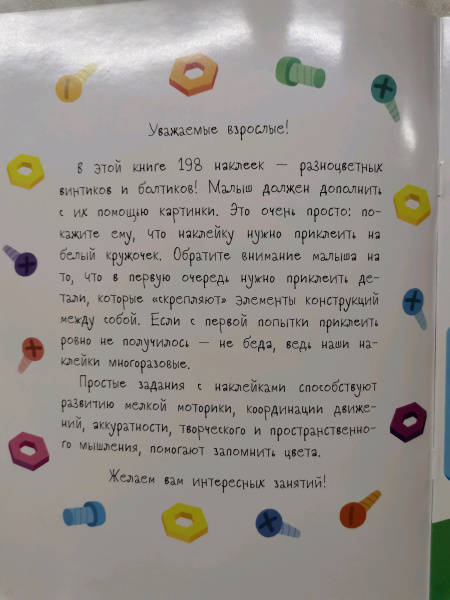 Уважаемые взрослые!
В этой книге 198 наклеек — разноцветных
винтиков и болтиков! Малыш должен дополнить
с их помощью картинки. Это очень просто: по-
кажите ему, что наклейку нужно приклеить на
белый кружочек. Обратите внимание малыша на
то, что в первую очередь нужно приклеить де-
тали, которые «скрепляют» элементы конструкций
между собой. Если с первой попытки приклеить
ровно не получилось — не беда, ведь наши на-
клейки многоразовые.
Простые задания с наклейками способствуют
развитию мелкой моторики, координации движе-
ний, аккуратности, творческого и пространственно-
го мышления, помогают запомнить цвета.
Желаем вам интересных занятий!